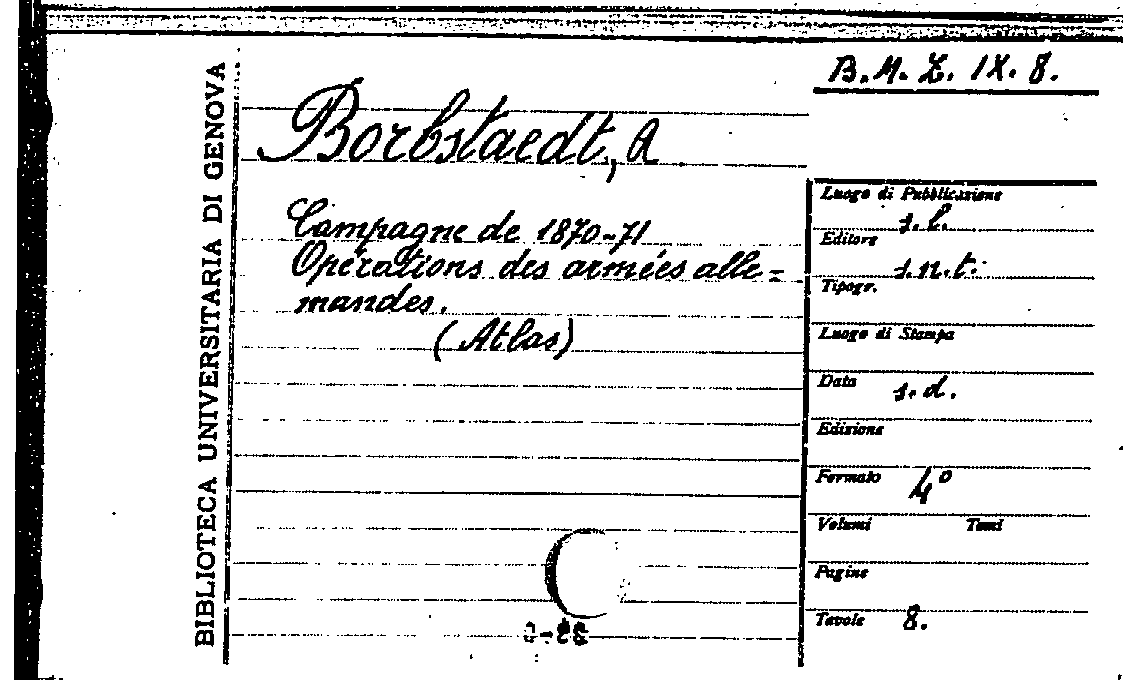 B.M.Z. IX. 8.
BIBLIOTECA UNIVERSITARIA DI GENOVA
Borbstaedt, A
Campagne de 1870-71
Opérations des armées alle=
mandes.
(Atlas)
Luogo di Pubblicazione
s.l.
Editore
s.n.t.
Tipogr.
Luogo di Stampa
Data s.d.
Edizione
Formato 4º
Volumi Tomi
Pagine
Tavole 8.